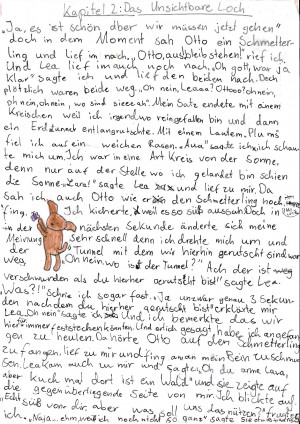 Kapitel 2: Das Unsichtbare Loch
„Ja, es ist schön aber wir müssen jetzt gehen"
doch in dem Moment sah Otto ein Schmetter-
ling und lief im nach. „Otto, aus, bleib stehen" rief ich.
Und Lea lief im auch noch nach. „Oh gott, war ja
klar" sagte ich und lief den beiden nach. Doch
plötzlich waren beide weg. „Oh nein, Leaaa? Ottooo? oh nein,
oh nein, oh nein, wo sind sie
Mein Satz endete mit einem
Kreischen weil ich irgendwo reingefallen bin und dann
ein Erd entlangrutschte. Mit einem Lauten Plums
fiel ich auf ein weichen Rasen. „Aua" sagte ich, ich schau
te mich um. Ich war in eine Art Kreis von der Sonne,
denn nur auf der Stelle wo ich gelandet bin schien
die Sonne. sagte Lea und lief zu mir. Da
sah ich auch Otto wie er den Schmetterling noch
fing. Ich kicherte, weil es so süß aussah. Doch in
in der nächsten Sekunde änderte sich meine
Meinung sehr schnell denn ich drehte mich um und
der Tunnel mit dem wir hierhin gerutscht sind war
weg. „Oh nein wo ist der Tunnel?" „Ach der ist
verschwunden als du hierher gerutscht bist" sagte Lea.
„Was?!" Schrie ich sogar fast. „Ja und zwar genau 3 Sekun-
den nachdem du hierher gerutscht bist" erklärte mir
Lea. „Oh nein" sagte ich und ich bemerkte das wir
hier für immer feststecken könnten. Und erlich gesagt, habe ich angefan
gen zu heulen. Da hörte Otto auf den Schmetterling
zu fangen, lief zu mir und fing an an mein Bein zu schmu
sen. Lea kam auch zu mir und sagte, „Oh du arme Lana,
aber kuck mal dort ist ein Wald" und sie zeigte auf
die gegenüberliegende Seite von mir. Ich blickte auf.
süß von dir aber was soll uns das nützen?" fragte
ich. „Naja... ehm, weiß ich noch nicht so ganz" sagte Sie